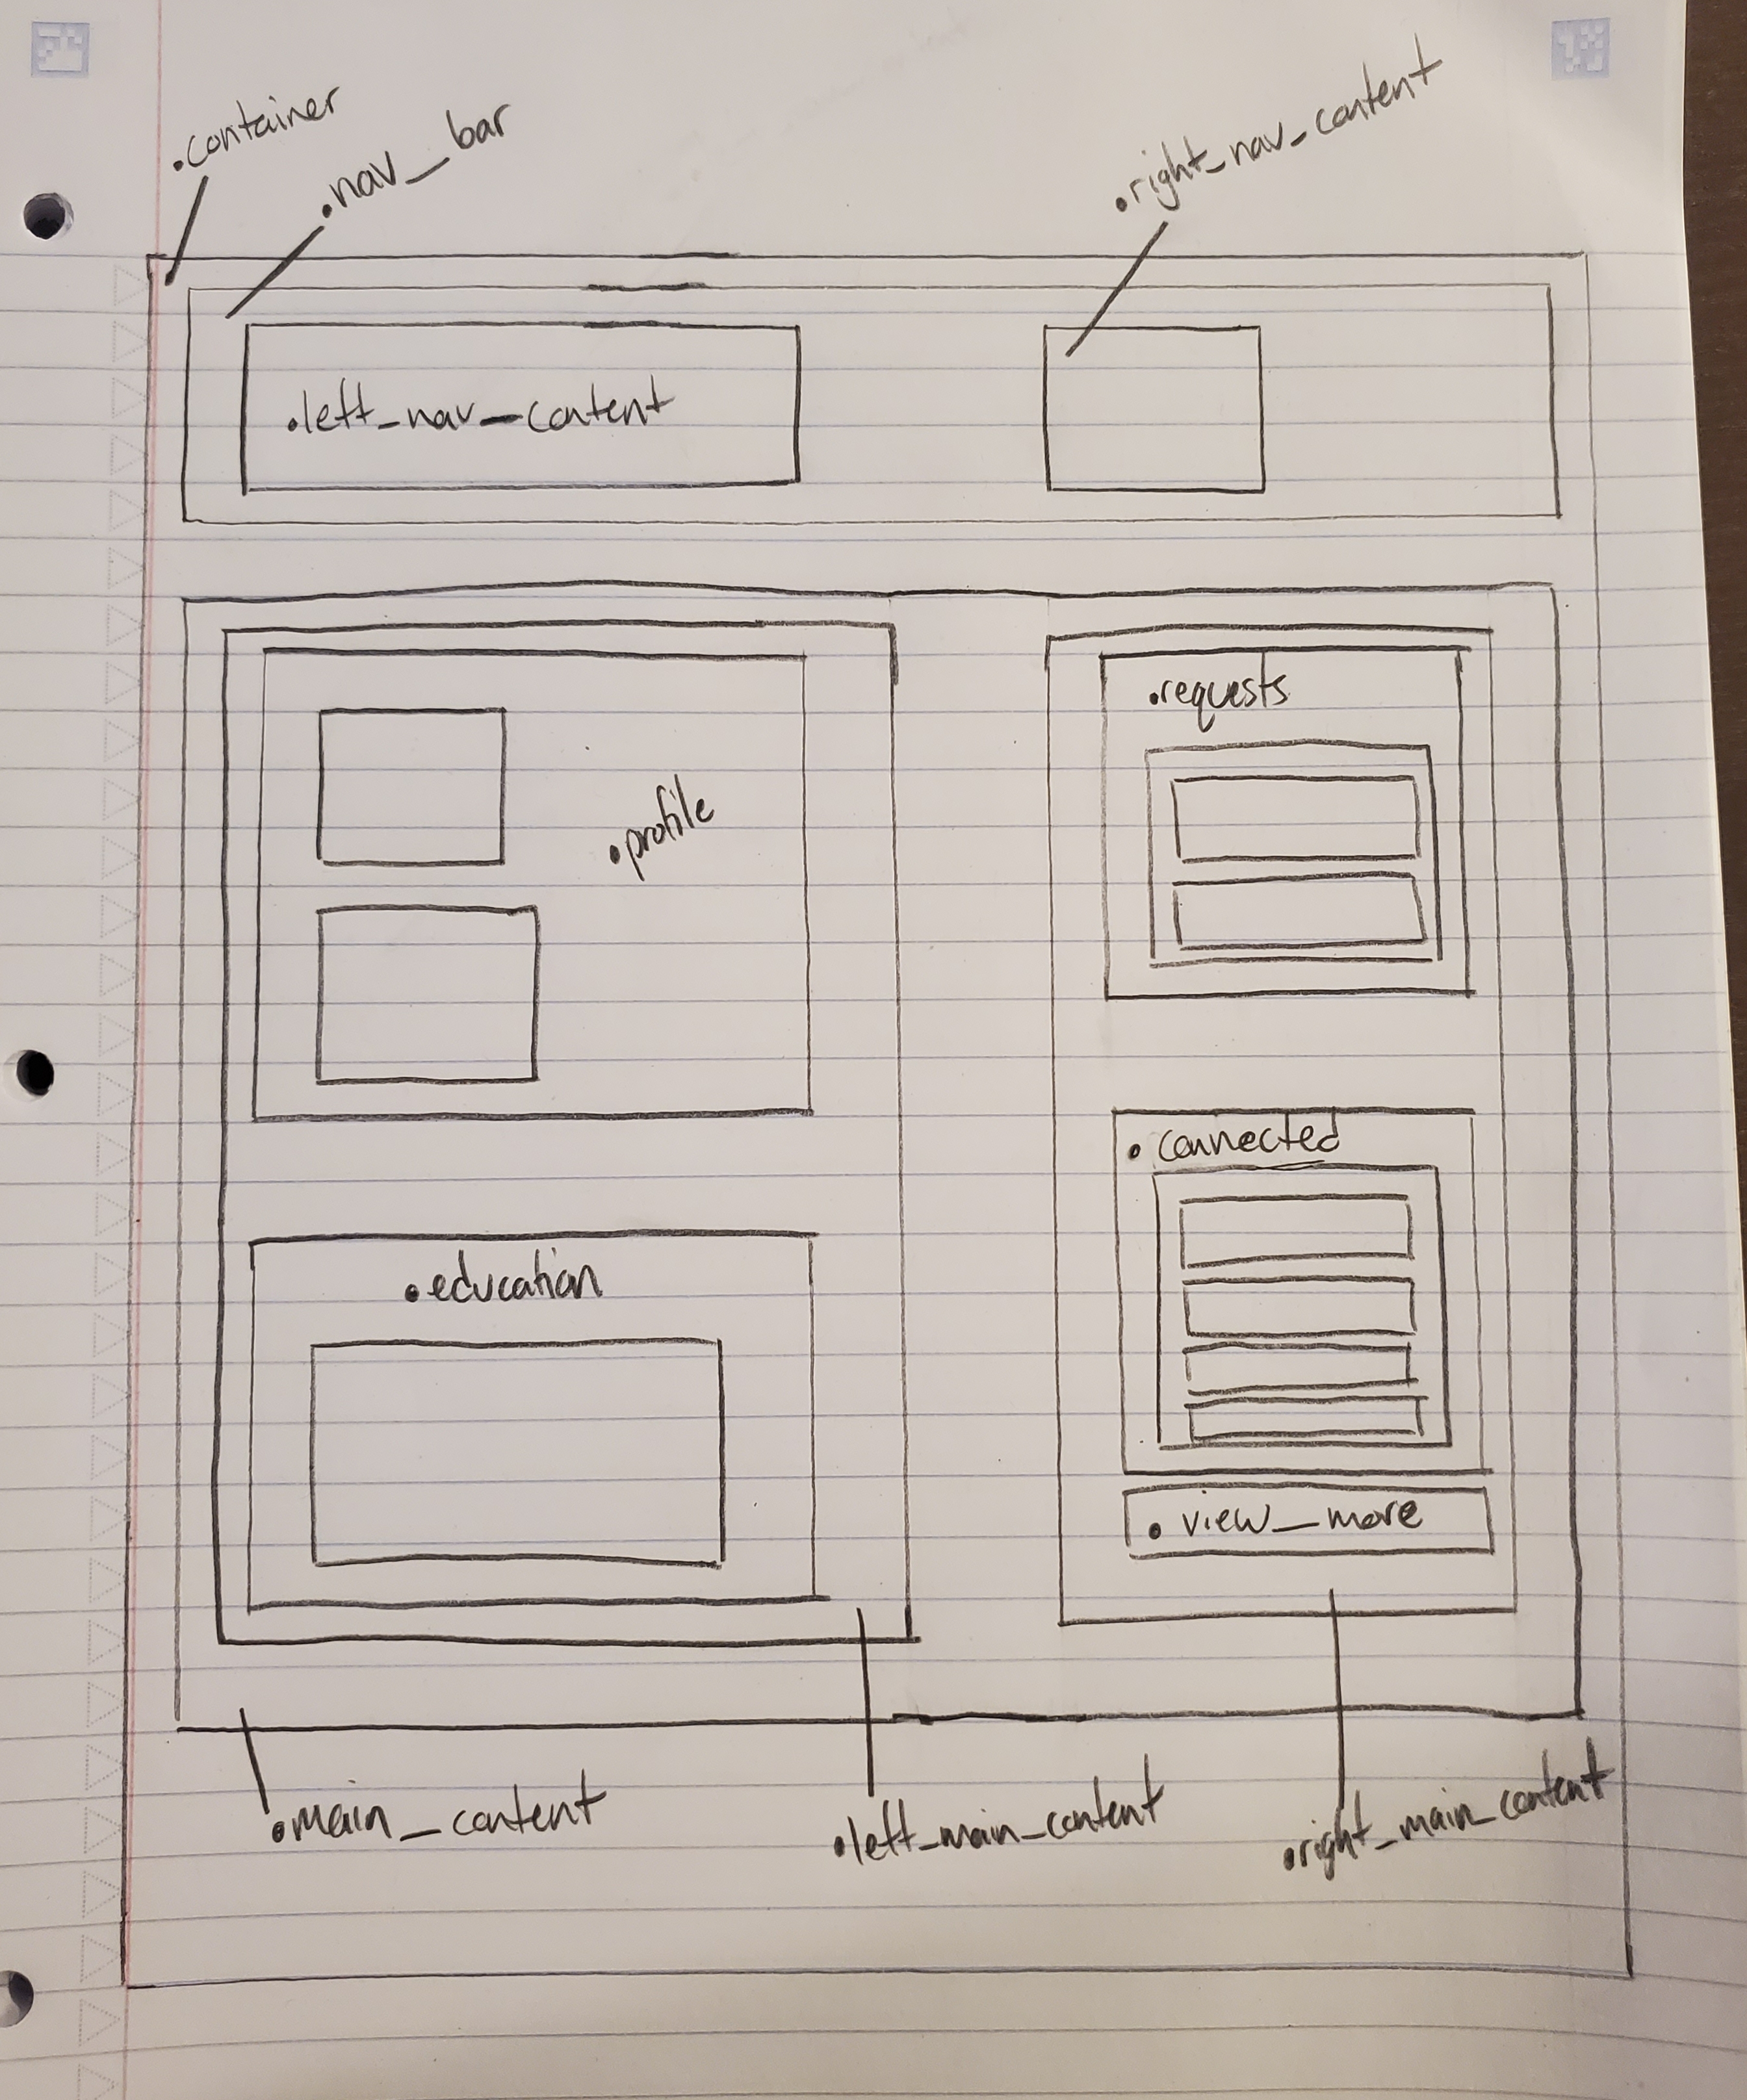 .container
.nav_bar
.right_nav_content
.left_nav_content
.requests
.profile
.connected
.education
.view_more
.main_content
.left_main_content
.right_main_content